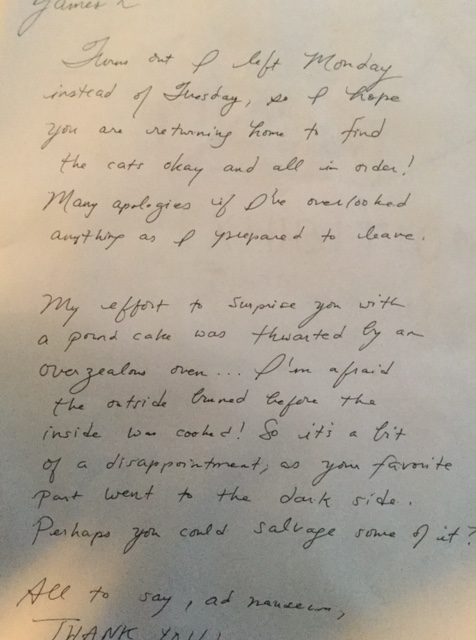 James
Turns out I left Monday
instead of Tuesday, so I hope
you are returning home to find
the cats okay and all in order!
Many apologies if I've overlooked
anything as I prepared to leave.
My effort to surprise you with
a pound cake was thwarted by an
overzealous oven... I'm afraid
the outside burned before the
inside was cooked! So it's a bit
of a disappointment, as your favorite
part went to the dark side.
Perhaps you could salvage some of it?
All to say, ad nauseum,
THANK YOU!